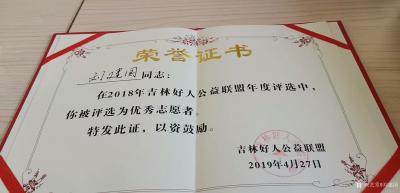 荣誉证书
刘建国同志:
在2018年吉林好人公益联盟年度评选中,
你被评选为优秀志愿者。
特发此证，以资鼓励。
吉林好人公益联盟
2019年4月27日